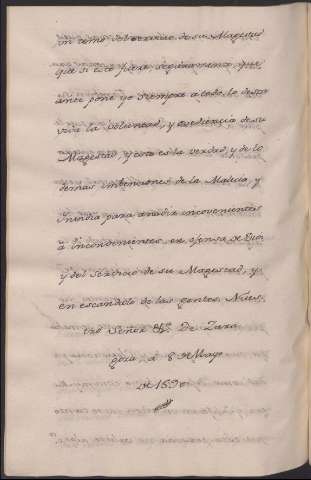 en como del servicio de su Magestad
que si esto fuera seguramente que
antepone yo siempre a todo lo desta
vida la voluntad, y obediencia de su
Magestad, y esta es la verdad, y de lo
demas imbenciones de la Malicia, y
Imbidia para añadir incovenientes
a incondenientes, en ofensa de Dios
y del Servicio de su Magestad, y
en escandolo de las gentes. Nues-
tro Señor &. De Zara
goza a 8 de Mayo
de 1590